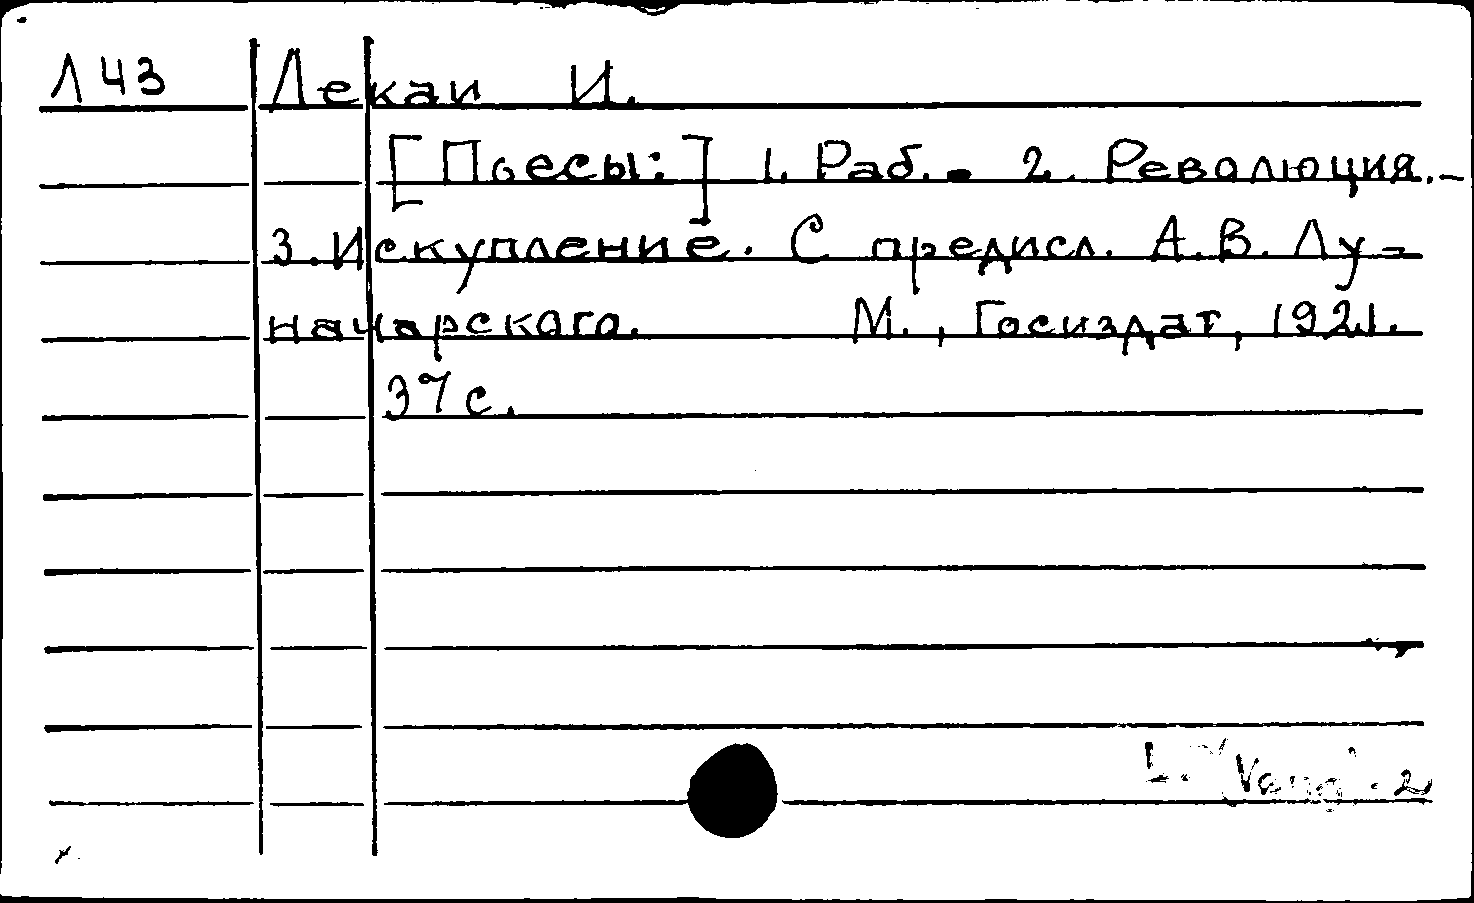 Л43 Лекаи И.
[Поесы:] 1. Раб. - 2. Революция. -
3. Искупление. С предисл. А.В. Лу-
начарского. М., Госиздат, 1921.
37 с.